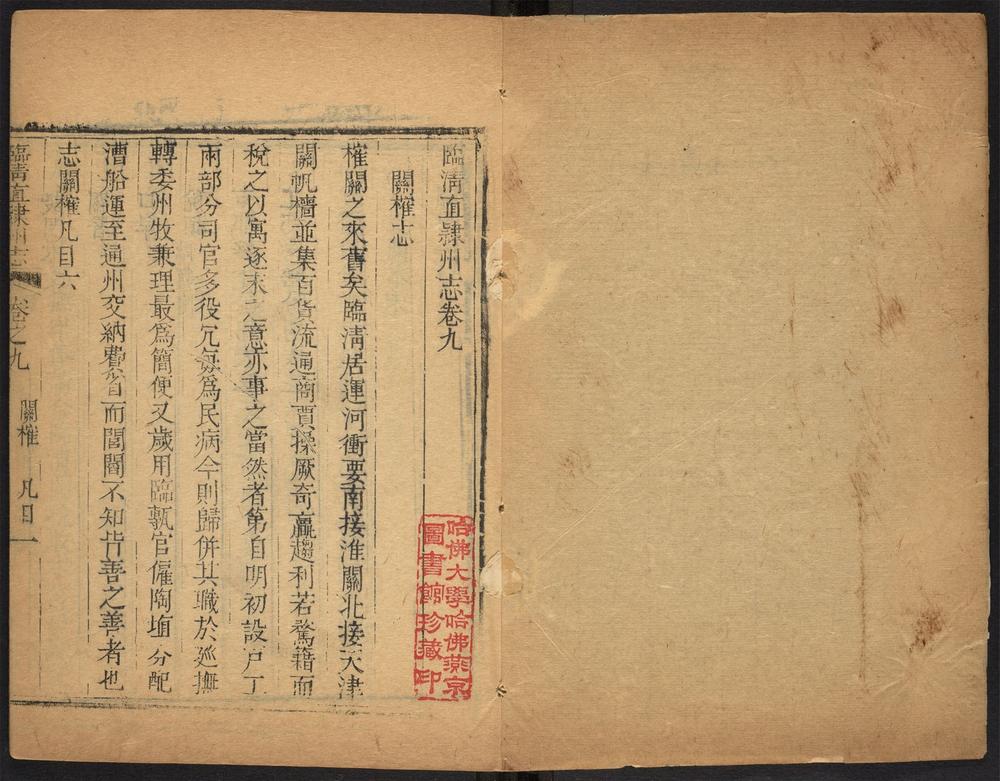 臨淸直隸州志卷九
關榷志
榷關之來舊矣臨淸居運河衝要南接淮關北接天津
關帆檣並集百貨流通商賈操厥奇贏趨利若鶩籍而
稅之以寓逐末之意亦事之當然者第自明初設戶工
兩部分司官多役冗每爲民病今則歸併其職於巡撫
轉委州牧兼理最爲簡便又歲用臨甎官僱陶埴分配
漕船運至通州交納費省而閭閻不知皆善之善者也
志關榷凡目六
臨淸直隸州志 卷之九 關榷 凡目 一
哈佛大學哈佛燕京
圖書館珍藏印